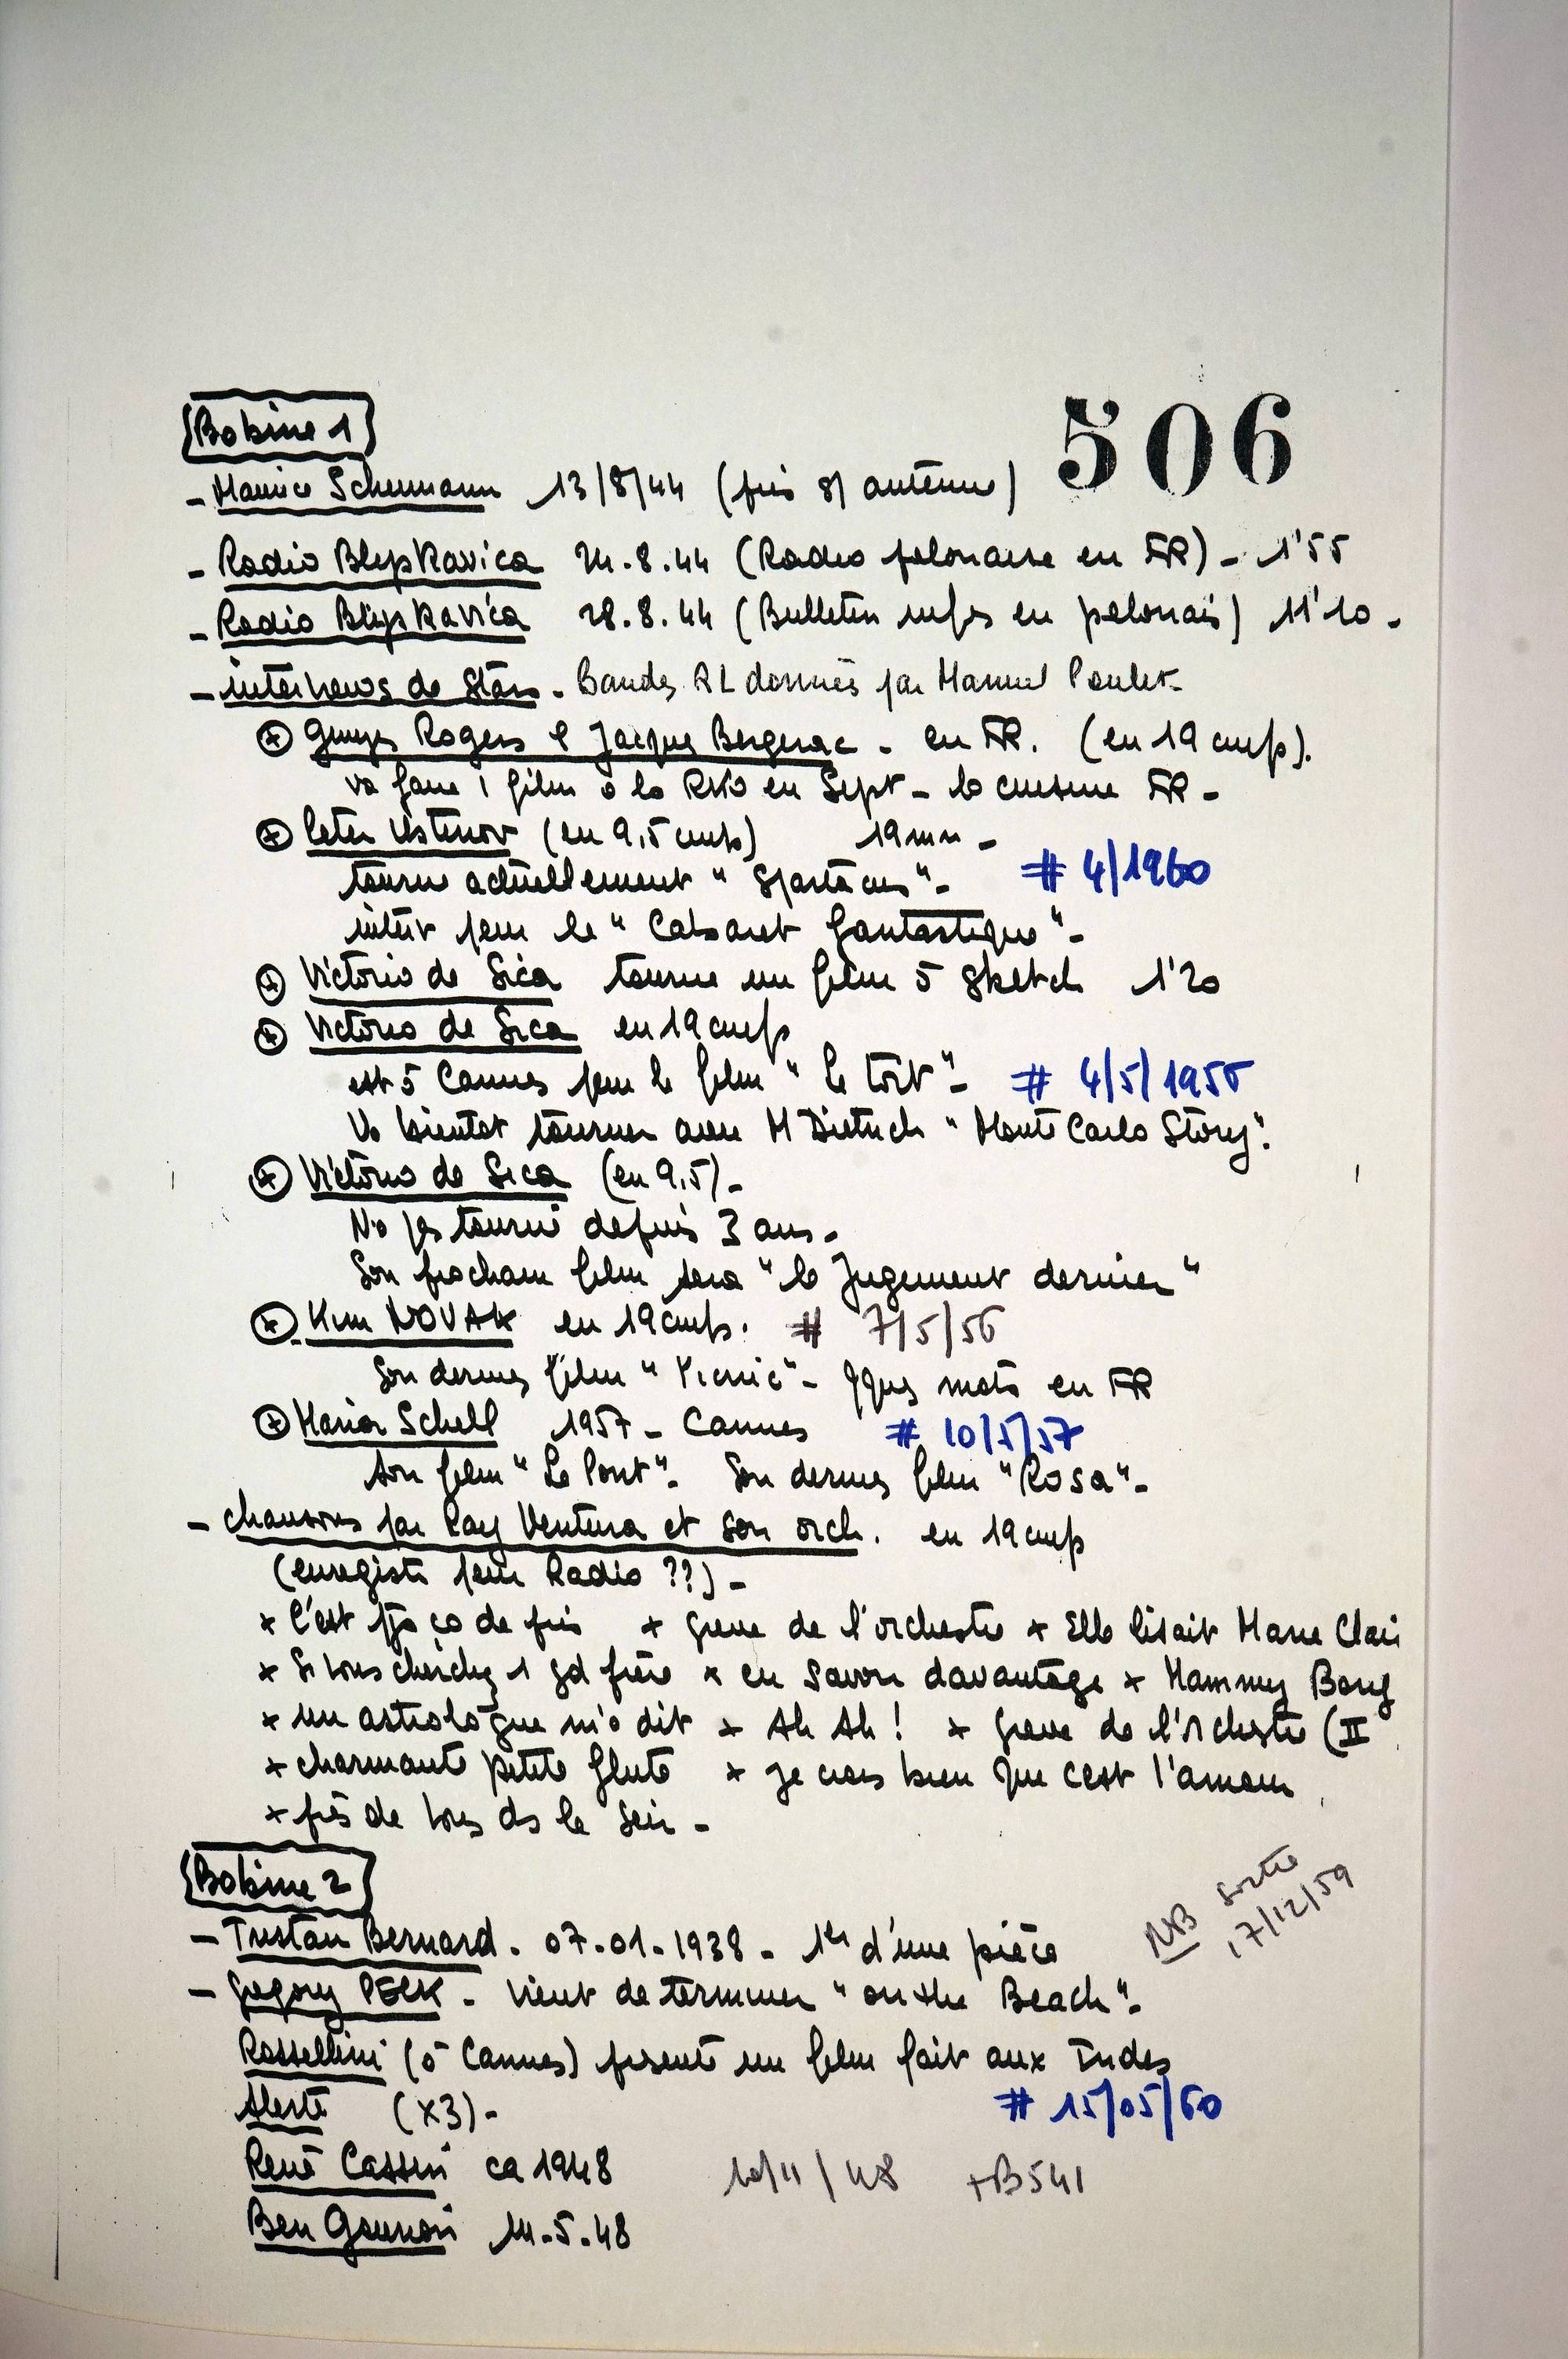 Bobine 1
506
- Maurice Schumann 13/8/44 (pris s/ antenne)
- Radio Blyskavica 24.8.44 (Radio polonaise en FR) - 1'55
- Radio Blyskavica 28.8.44 (Bulletin infos en polonais) 11'10 -
- interviews de Stars - Bandes RL données par Manuel Poulet -
* Ginger Rogers & Jacques Bergerac - en FR. (en 19 cm/s).
va faire 1 film à la RKO en Sept - la cuisine FR -
* Peter Ustinov (en 9,5 cm/s) 19 mn -
tourne actuellement "Spartacus" - # 4/1960
interv pour le "Cabaret fantastique" -
* Victorio de Sica tourne un film à sketch 1'20
* Victorio de Sica en 19 cm/s
est à Cannes pour le film "Le toit" - # 4/5/1956
Va bientot tourner avec M Dietrich "Monte Carlo Story".
* Victorio de Sica (en 9,5) -
N'a pas tourné depuis 3 ans -
Son prochain film sera "le Jugement dernier"
* Kim NOVAK en 19 cm/s. # 7/5/56
Son dernier film "Picnic" - qques mots en FR
* Maria Schell 1957 - Cannes # 10/5/57
son film "Le Pont" - Son dernier film "Rosa" -
- chansons par Ray Ventura et son orch. en 19 cm/s
(enregistré pour Radio ??) -
* C'est tjs ça de pris * greve de l'orchestre * Elle lisait Marie Clair
* Si vous cherchez 1 gd frère * en savoir davantage * Mammy Bong
* un astrologue m'a dit * Ah Ah ! * greve de l'orchestre (II
* charmante petite flute * je crois bien que c'est l'amour
* près de vous ds le soir -
Bobine 2
- Tristan Bernard - 07-01-1938 - 1ère d'une pièce
NB sortie
17/12/59
- Gregory PECK - vient de terminer "on the Beach" -
Rossellini (à Cannes) présente un film fait aux Indes
Alerte (x3) - # 15/05/60
René Cassin ca 1948 10/11/48 + B541
Ben Gourion 14-5-48